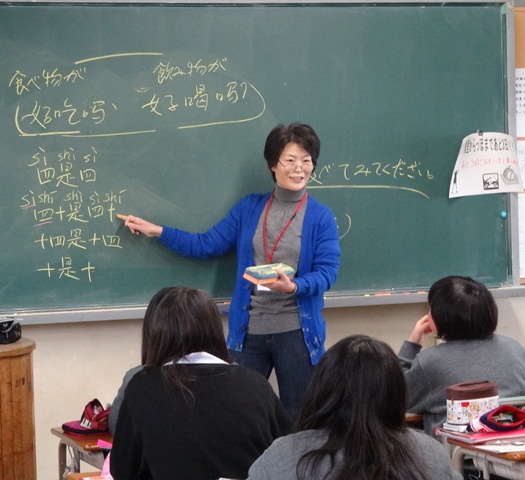 食べ物が 飲み物が
(好吃吗、 好喝吗?)
sì shì sì
四是四
sì shí shì sì shí
四十是四十
十四是十四
十是十
べてみてください。